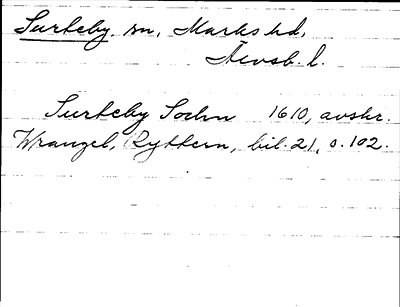 Surteby sn, Marks hd,
Älvsb. l.
Surteby Sochn 1610, avskr.
Wrangel, Ryttern, bil. 21, s. 102.